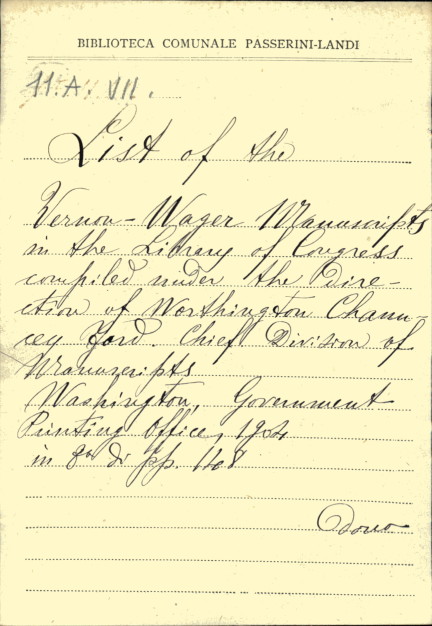 BIBLIOTECA COMUNALE PASSERINI-LANDI
11. A. VII.
List of the
Vernon-Wager Manuscripts
in the Library of Congress
compiled under the Dire-
ction of Worthington Chaun-
cey Ford. Chief Division of
Manuscripts
Washington, Government
Printing Office, 1904
in 8º di pp. 148
Dono